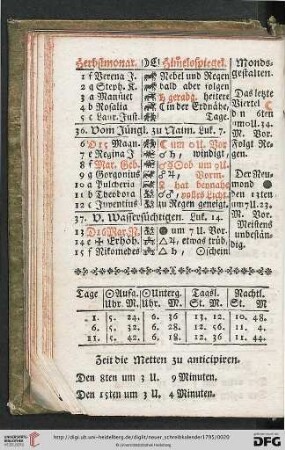 Herbstmonat. Himelsspiegel. Monds-
gestalten.
1 f Verena J. Nebel und Regen
2 g Steph. K. bald aber folgen
3 a Mansuet ♄ geradg. heitere Das letzte
4 b Rosalia in der Erdnähe, Viertel ☾
5 c Laur. Just. den 6ten
36. Vom Jüngl. zu Naim. Luk. 7. M. Vor.
6 D15 Magn. ☾ um 0 U. Vor Folgt Re-
7 e Regina J ☌♄, windigt, gen.
8 f Mar. Geb. um 9 U.
9 g Gorgonius ☍♃, Vorm. Der Neu-
10 a Pulcheria ♀ hat beynahe mond ●
11 b Theodora ☍♂, volles Licht. den 13ten
12 c Juventius zu Regen geneigt. um 7 U. 23.
37. V. Wassersüchtigen. Luk. 14. M. Vor.
13 D16 Mar. N. ● um 7 U. Vor. Meistens
14 e ✠ Erhöh. △♃, etwas trüb, unbestän-
15 f Nikomedes △♄, ☉schein dig.
Tage ☉Aufg. ☉Unterg. Tagsl. Nachtl.
Uhr. M. Uhr. M. St. M St. M
1. 5. 24. 6. 36 13. 12. 10. 48.
6. 5. 32. 6. 28. 12. 56. 11. 4.
11. 5. 42. 6. 18. 12. 36 11. 44.
Zeit die Metten zu anticipiren.
Den 8ten um 3 U. 9 Minuten.
Den 15ten um 3 U. 4 Minuten.
http://digi.ub.uni-heidelberg.de/diglit/neuer_schreibkalender1795/0020
© Universitätsbibliothek Heidelberg
UNIVERSITÄTS-
BIBLIOTHEK
HEIDELBERG
gefördert durch die
DFG